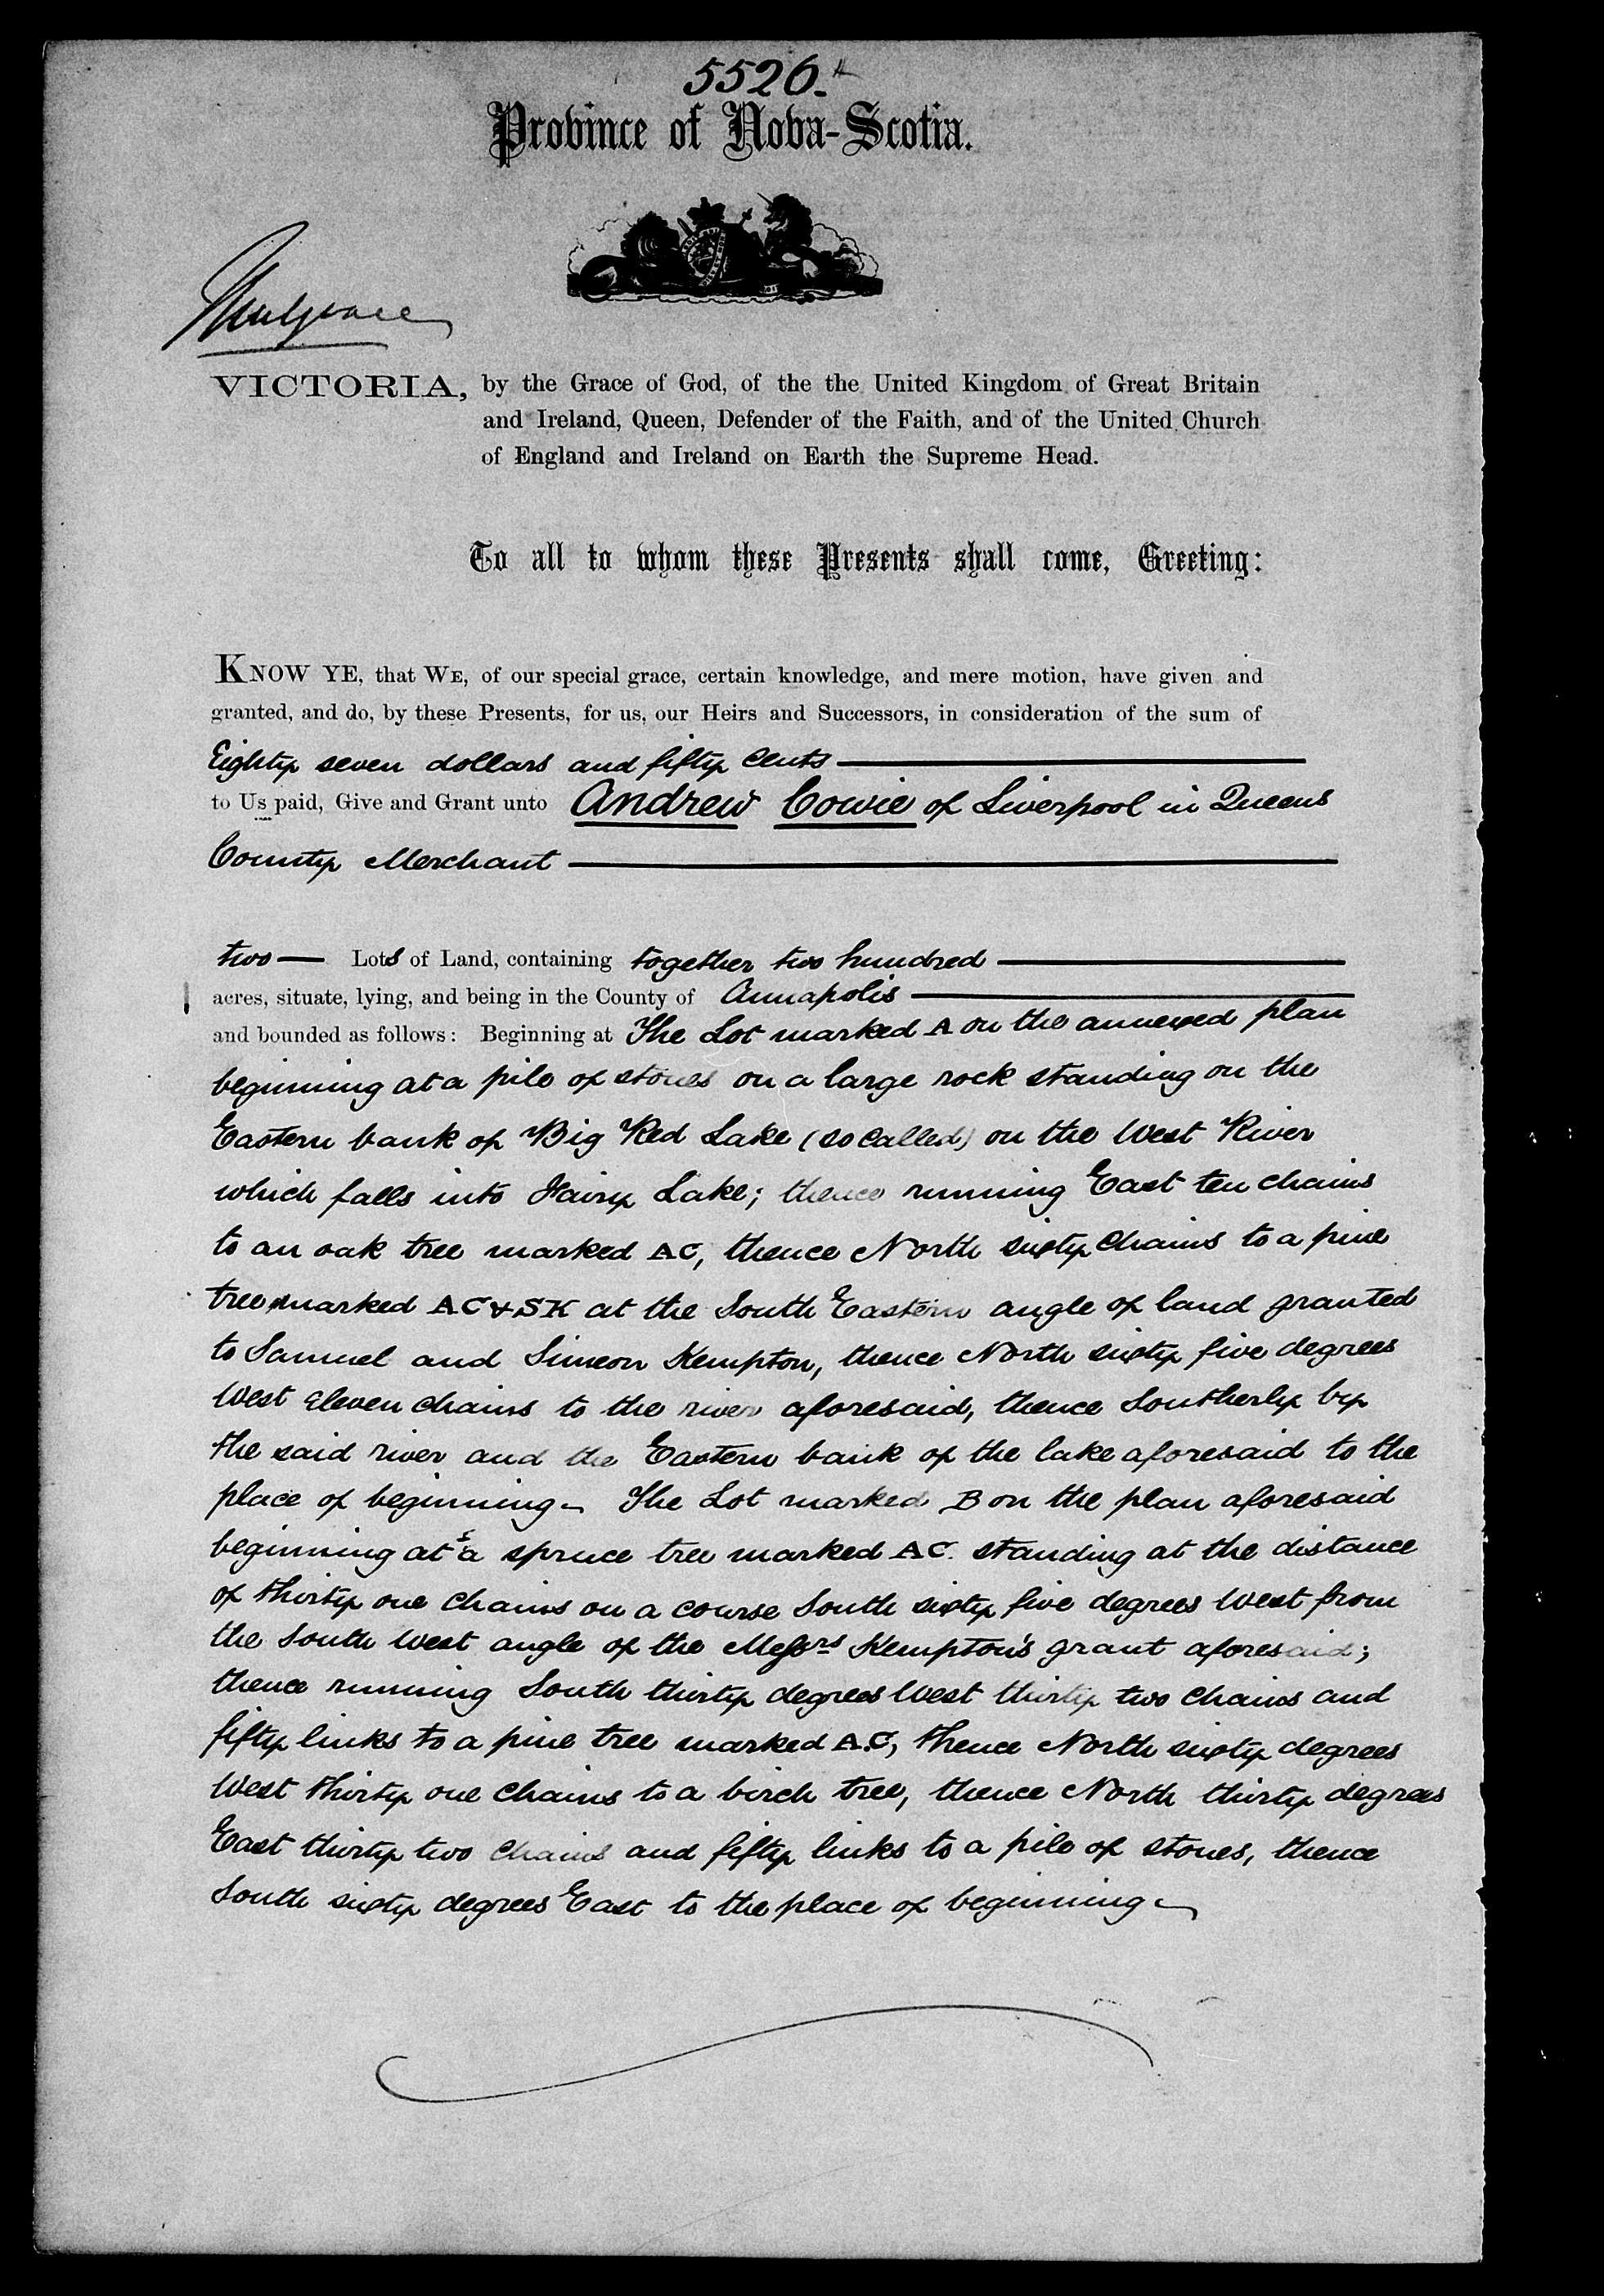 5526.
Province of Nova-Scotia.
Mulgrave
VICTORIA, by the Grace of God, of the the United Kingdom of Great Britain
and Ireland, Queen, Defender of the Faith, and of the United Church
of England and Ireland on Earth the Supreme Head.
To all to whom these Presents shall come, Greeting:
KNOW YE, that WE, of our special grace, certain knowledge, and mere motion, have given and
granted, and do, by these Presents, for us, our Heirs and Successors, in consideration of the sum of
Eighty seven dollars and fifty Cents
to Us paid, Give and Grant unto Andrew Cowie of Liverpool in Queens
County Merchant
two Lots of Land, containing together two hundred
acres, situate, lying, and being in the County of Annapolis
and bounded as follows: Beginning at The Lot marked A on the annexed plan
beginning at a pile of stones on a large rock standing on the
Eastern bank of Big Red Lake (so called) on the West River
which falls into Fairy Lake; thence running East ten chains
to an oak tree marked AC, thence North sixty chains to a pine
tree marked AC & SK at the South Eastern angle of land granted
to Samuel and Simeon Kempton, thence North sixty five degrees
West Eleven chains to the river aforesaid, thence Southerly by
the said river and the Eastern bank of the lake aforesaid to the
place of beginning - The Lot marked B on the plan aforesaid
beginning at a spruce tree marked AC. standing at the distance
of thirty one chains on a course South sixty five degrees West from
the South West angle of the Messrs Kempton's grant aforesaid;
thence running South thirty degrees West thirty two chains and
fifty links to a pine tree marked A.C, thence North sixty degrees
West thirty one chains to a birch tree, thence North thirty degrees
East thirty two chains and fifty links to a pile of stones, thence
South sixty degrees East to the place of beginning -